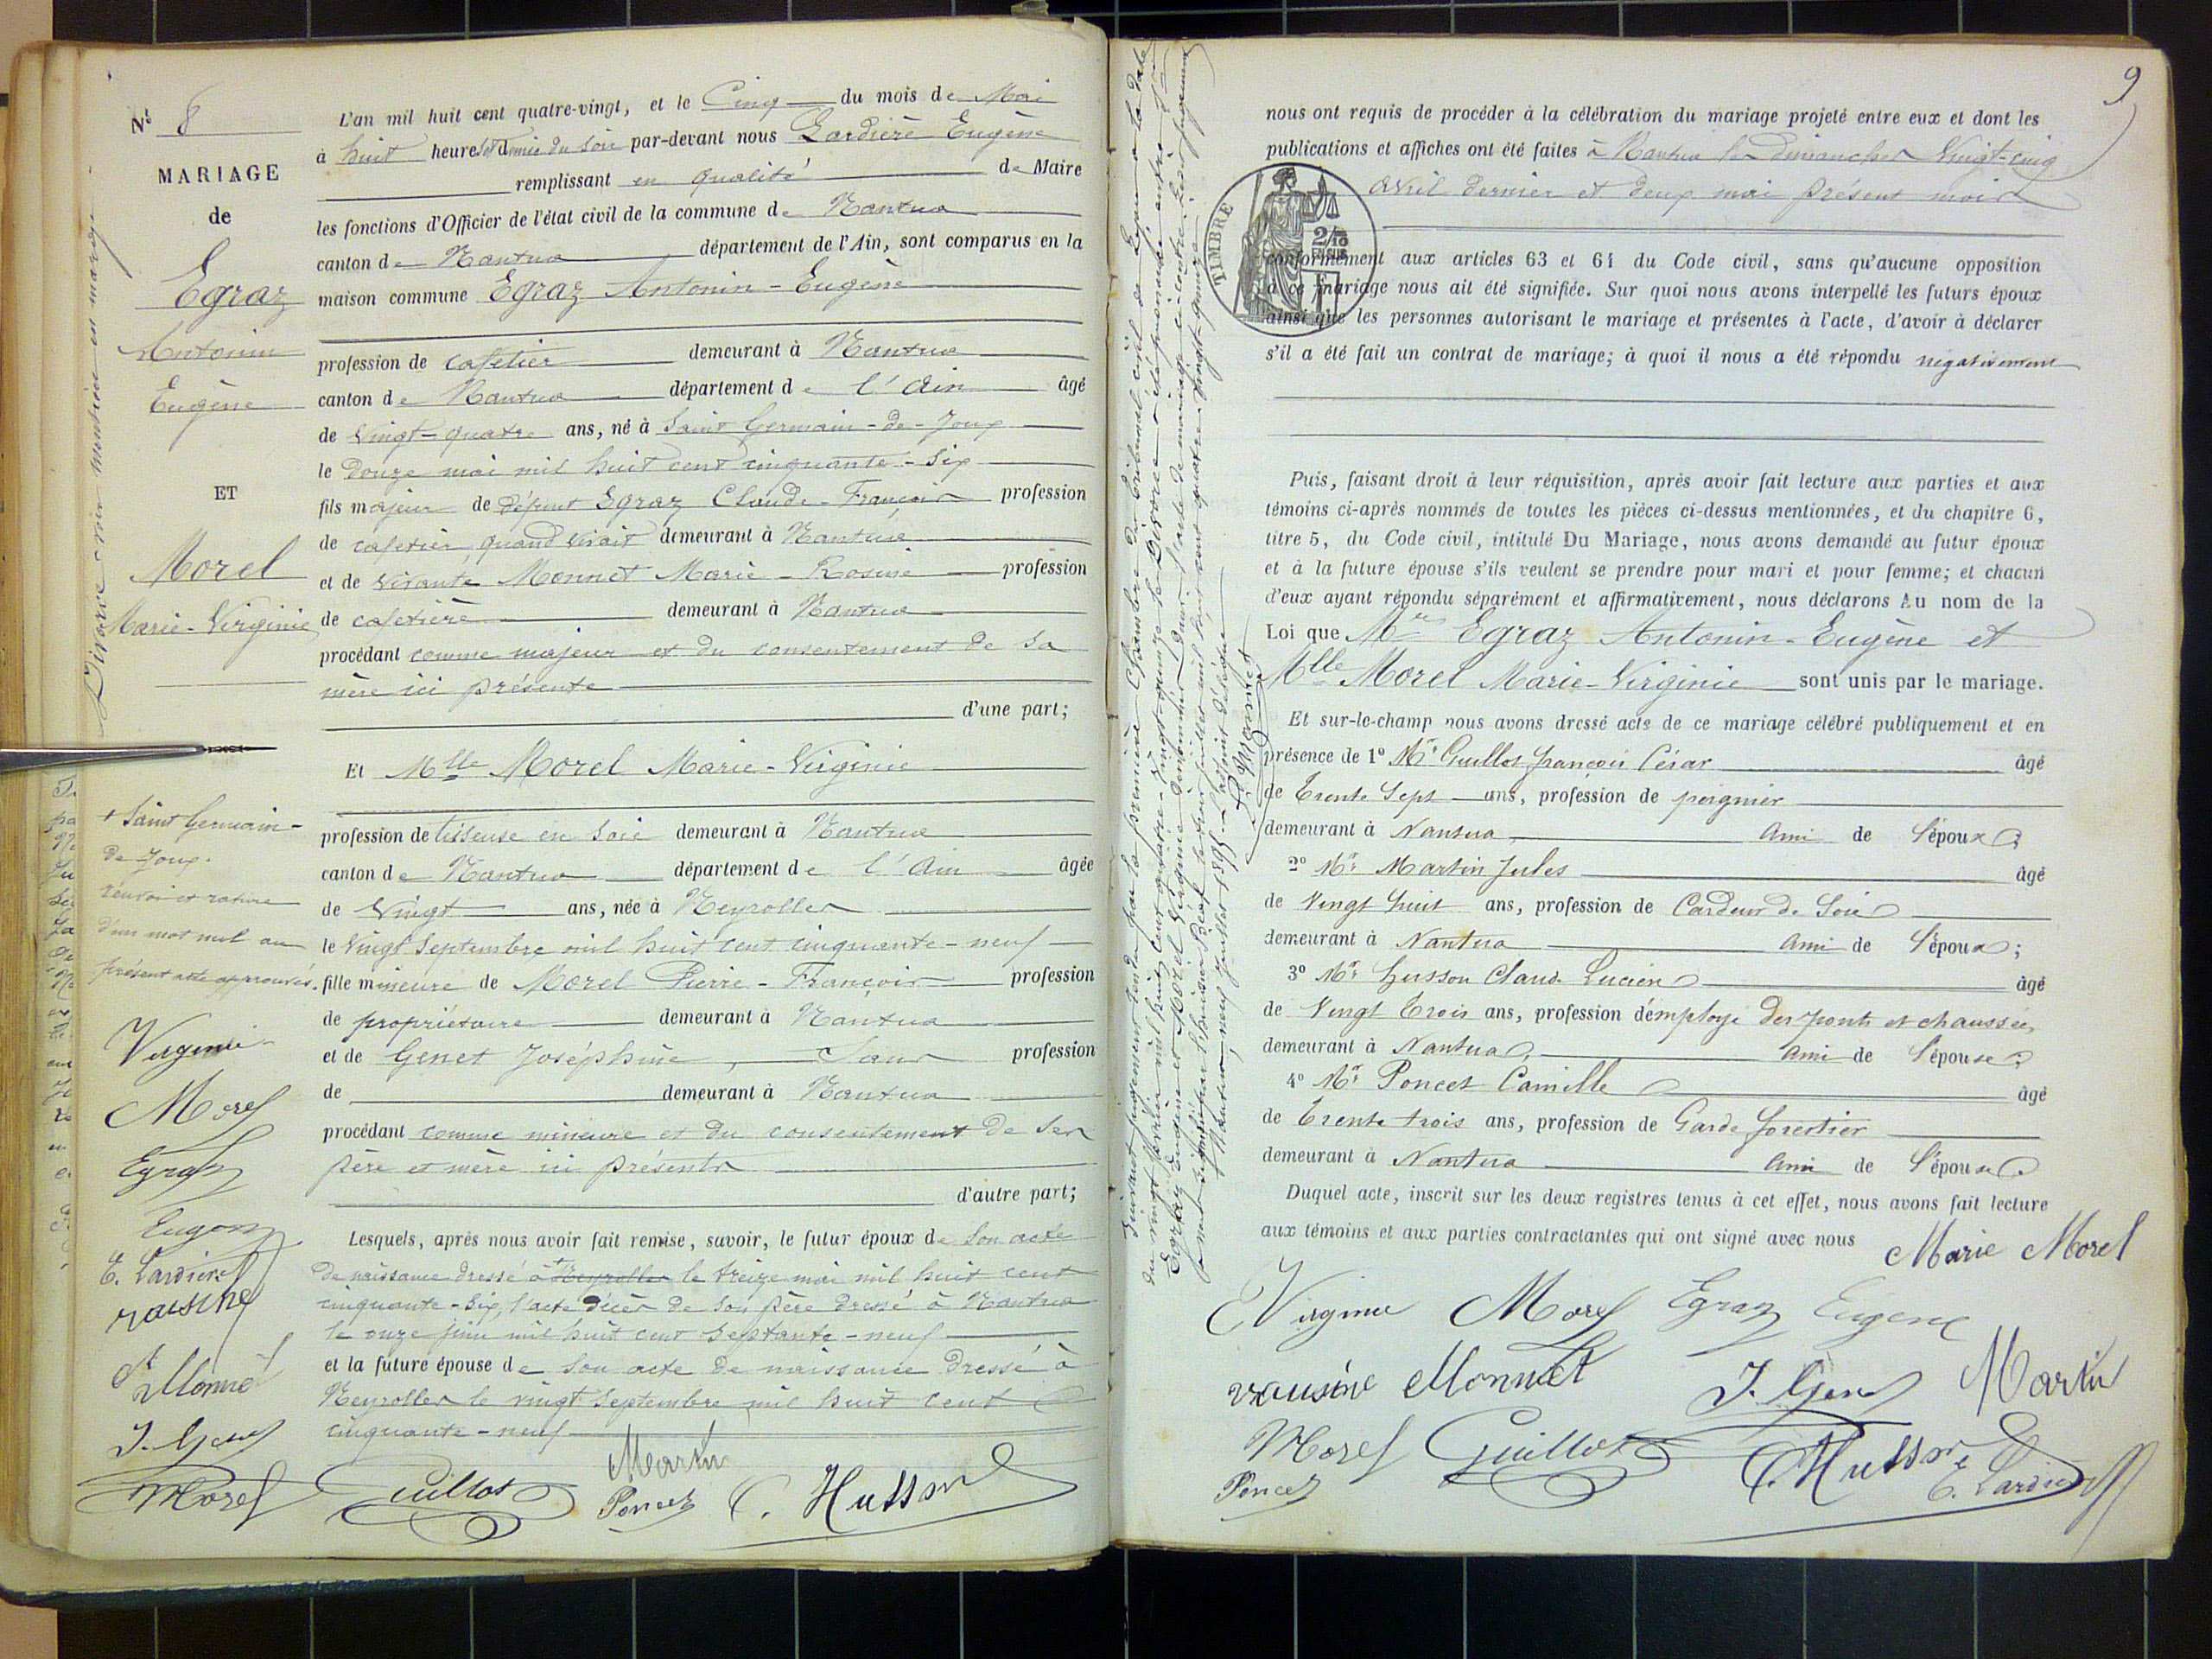 Nº 8
MARIAGE
de
Egraz
Antonin
Eugène
ET
Morel
Marie-Virginie
Divorce voir mention en marge
L'an mil huit cent quatre-vingt, et le Cinq du mois de Mai
à huit heures et demie du soir par-devant nous Lardière Eugène
remplissant en qualité de Maire
les fonctions d'Officier de l'état civil de la commune de Nantua
canton de Nantua département de l'Ain, sont comparus en la
maison commune Egraz Antonin-Eugène
profession de cafetier demeurant à Nantua
canton de Nantua département de l'Ain âgé
de vingt-quatre ans, né à Saint Germain-de-Joux
le douze mai mil huit cent cinquante-six
fils majeur de défunt Egraz Claude-François profession
de cafetier, quand vivait demeurant à Nantua
et de vivante Monnet Marie-Rosine profession
de cafetière demeurant à Nantua
procédant comme majeur et du consentement de sa
mère ici présente
d'une part;
Et Mlle Morel Marie-Virginie
profession de tisseuse en soie demeurant à Nantua
canton de Nantua département de l'Ain âgée
de Vingt ans, née à Neyrolles
le vingt Septembre mil huit cent cinquante-neuf
fille mineure de Morel Pierre-François profession
de propriétaire demeurant à Nantua
et de Genet Joséphine, Sans profession
de demeurant à Nantua
procédant comme mineure et du consentement de ses
père et mère ici présents
d'autre part;
Lesquels, après nous avoir fait remise, savoir, le futur époux de son acte
de naissance dressé à + Neyrolles le treize mai mil huit cent
cinquante-six, l'acte décès de son père dressé à Nantua
le onze juin mil huit cent septante-neuf
et la future épouse de son acte de naissance dressé à
Neyrolles le vingt Septembre mil huit cent
cinquante-neuf
+ Saint Germain-
de-Joux.
renvoi et rature
d'un mot nul au
présent acte approuvés.
Virginie
Morel
Egraz
Eugene
E. Lardière
rausine
Monnet
J. Genet
Morel
Guillot
Martin
Poncet
C. Husson
9
nous ont requis de procéder à la célébration du mariage projeté entre eux et dont les
publications et affiches ont été faites à Nantua les dimanches Vingt-cinq
avril dernier et deux mai présent mois
TIMBRE
2/10
EN SUS
conformément aux articles 63 et 64 du Code civil, sans qu'aucune opposition
à ce mariage nous ait été signifiée. Sur quoi nous avons interpellé les futurs époux
ainsi que les personnes autorisant le mariage et présentes à l'acte, d'avoir à déclarer
s'il a été fait un contrat de mariage; à quoi il nous a été répondu négativement
Puis, faisant droit à leur réquisition, après avoir fait lecture aux parties et aux
témoins ci-après nommés de toutes les pièces ci-dessus mentionnées, et du chapitre 6,
titre 5, du Code civil, intitulé Du Mariage, nous avons demandé au futur époux
et à la future épouse s'ils veulent se prendre pour mari et pour femme; et chacun
d'eux ayant répondu séparément et affirmativement, nous déclarons Au nom de la
Loi que Mr Egraz Antonin-Eugène et
Mlle Morel Marie-Virginie sont unis par le mariage.
Et sur-le-champ nous avons dressé acte de ce mariage célébré publiquement et en
présence de 1º Mr Guillot François César âgé
de Trente Sept ans, profession de peignier
demeurant à Nantua Ami de l'époux
2º Mr Martin Jules âgé
de Vingt huit ans, profession de Cardeur de Soie
demeurant à Nantua Ami de l'époux;
3º Mr Husson Claude Lucien âgé
de Vingt Trois ans, profession d'employé des ponts et chaussées
demeurant à Nantua, Ami de l'épouse
4º Mr Poncet Camille âgé
de Trente trois ans, profession de Garde forestier
demeurant à Nantua Ami de l'épouse
Duquel acte, inscrit sur les deux registres tenus à cet effet, nous avons fait lecture
aux témoins et aux parties contractantes qui ont signé avec nous
Marie Morel
Virginie Morel Egraz Eugene
rausine Monnet J. Genet Martin
Morel Guillot C. Husson
Poncet E. Lardière
Suivant jugement rendu par la première Chambre du tribunal civil de Lyon à la date
du vingt février mil huit cent quatre-vingt-quinze le Divorce a été prononcé entre
Egraz Eugène et Morel Virginie dénommés dans l'acte de mariage ci-contre.
mil huit cent quatre-vingt-quinze
Nantua, neuf Juillet 1895. L'adjoint délégué